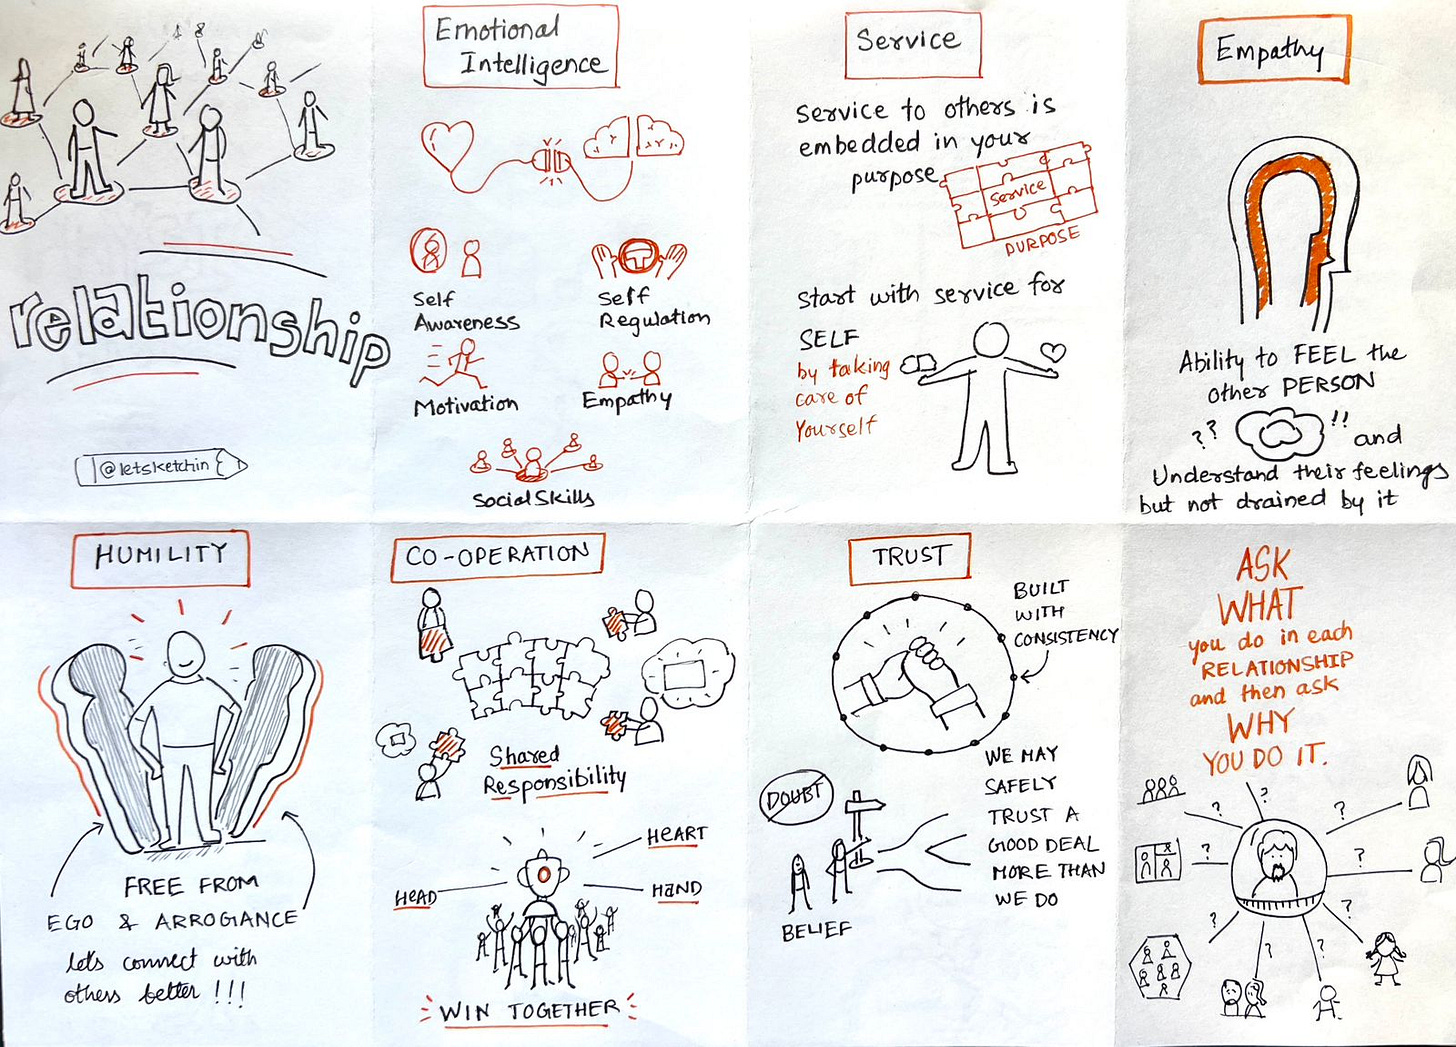 relationship
@letsketchin
Emotional
Intelligence
Self
Awareness
Self
Regulation
Motivation
Empathy
Social Skills
Service
Service to others is
embedded in your
purpose
Service
PURPOSE
Start with service for
SELF
by taking
care of
Yourself
Empathy
Ability to FEEL the
other PERSON
?? !! and
Understand their feelings
but not drained by it
HUMILITY
FREE FROM
EGO & ARROGIANCE
lets connect with
others better !!!
CO-OPERATION
Shared
Responsibility
HEART
HEAD
HAND
WIN TOGETHER
TRUST
BUILT
WITH
CONSISTENCY
DOUBT
BELIEF
WE MAY
SAFELY
TRUST A
GOOD DEAL
MORE THAN
WE DO
ASK
WHAT
you do in each
RELATIONSHIP
and then ask
WHY
YOU DO IT.
? ?
?
? ?
? ?
? ?